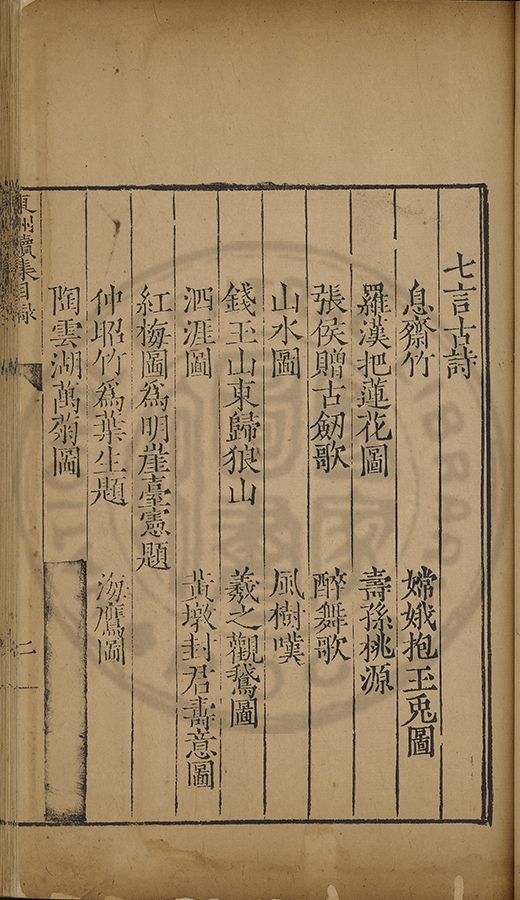 七言古詩
息齋竹　嫦娥抱玉兎圖
羅漢把蓮花圖　壽孫桃源
張侯贈古劒歌　醉舞歌
山水圖　風樹嘆
錢玉山東歸狼山　羲之觀鵞圖
泗涯圖　黃墩封君壽意圖
紅梅圖爲明崖臺憲題
仲昭竹爲葉生題　海鷹圖
陶雲湖萬菊圖
東洲續集目録
二